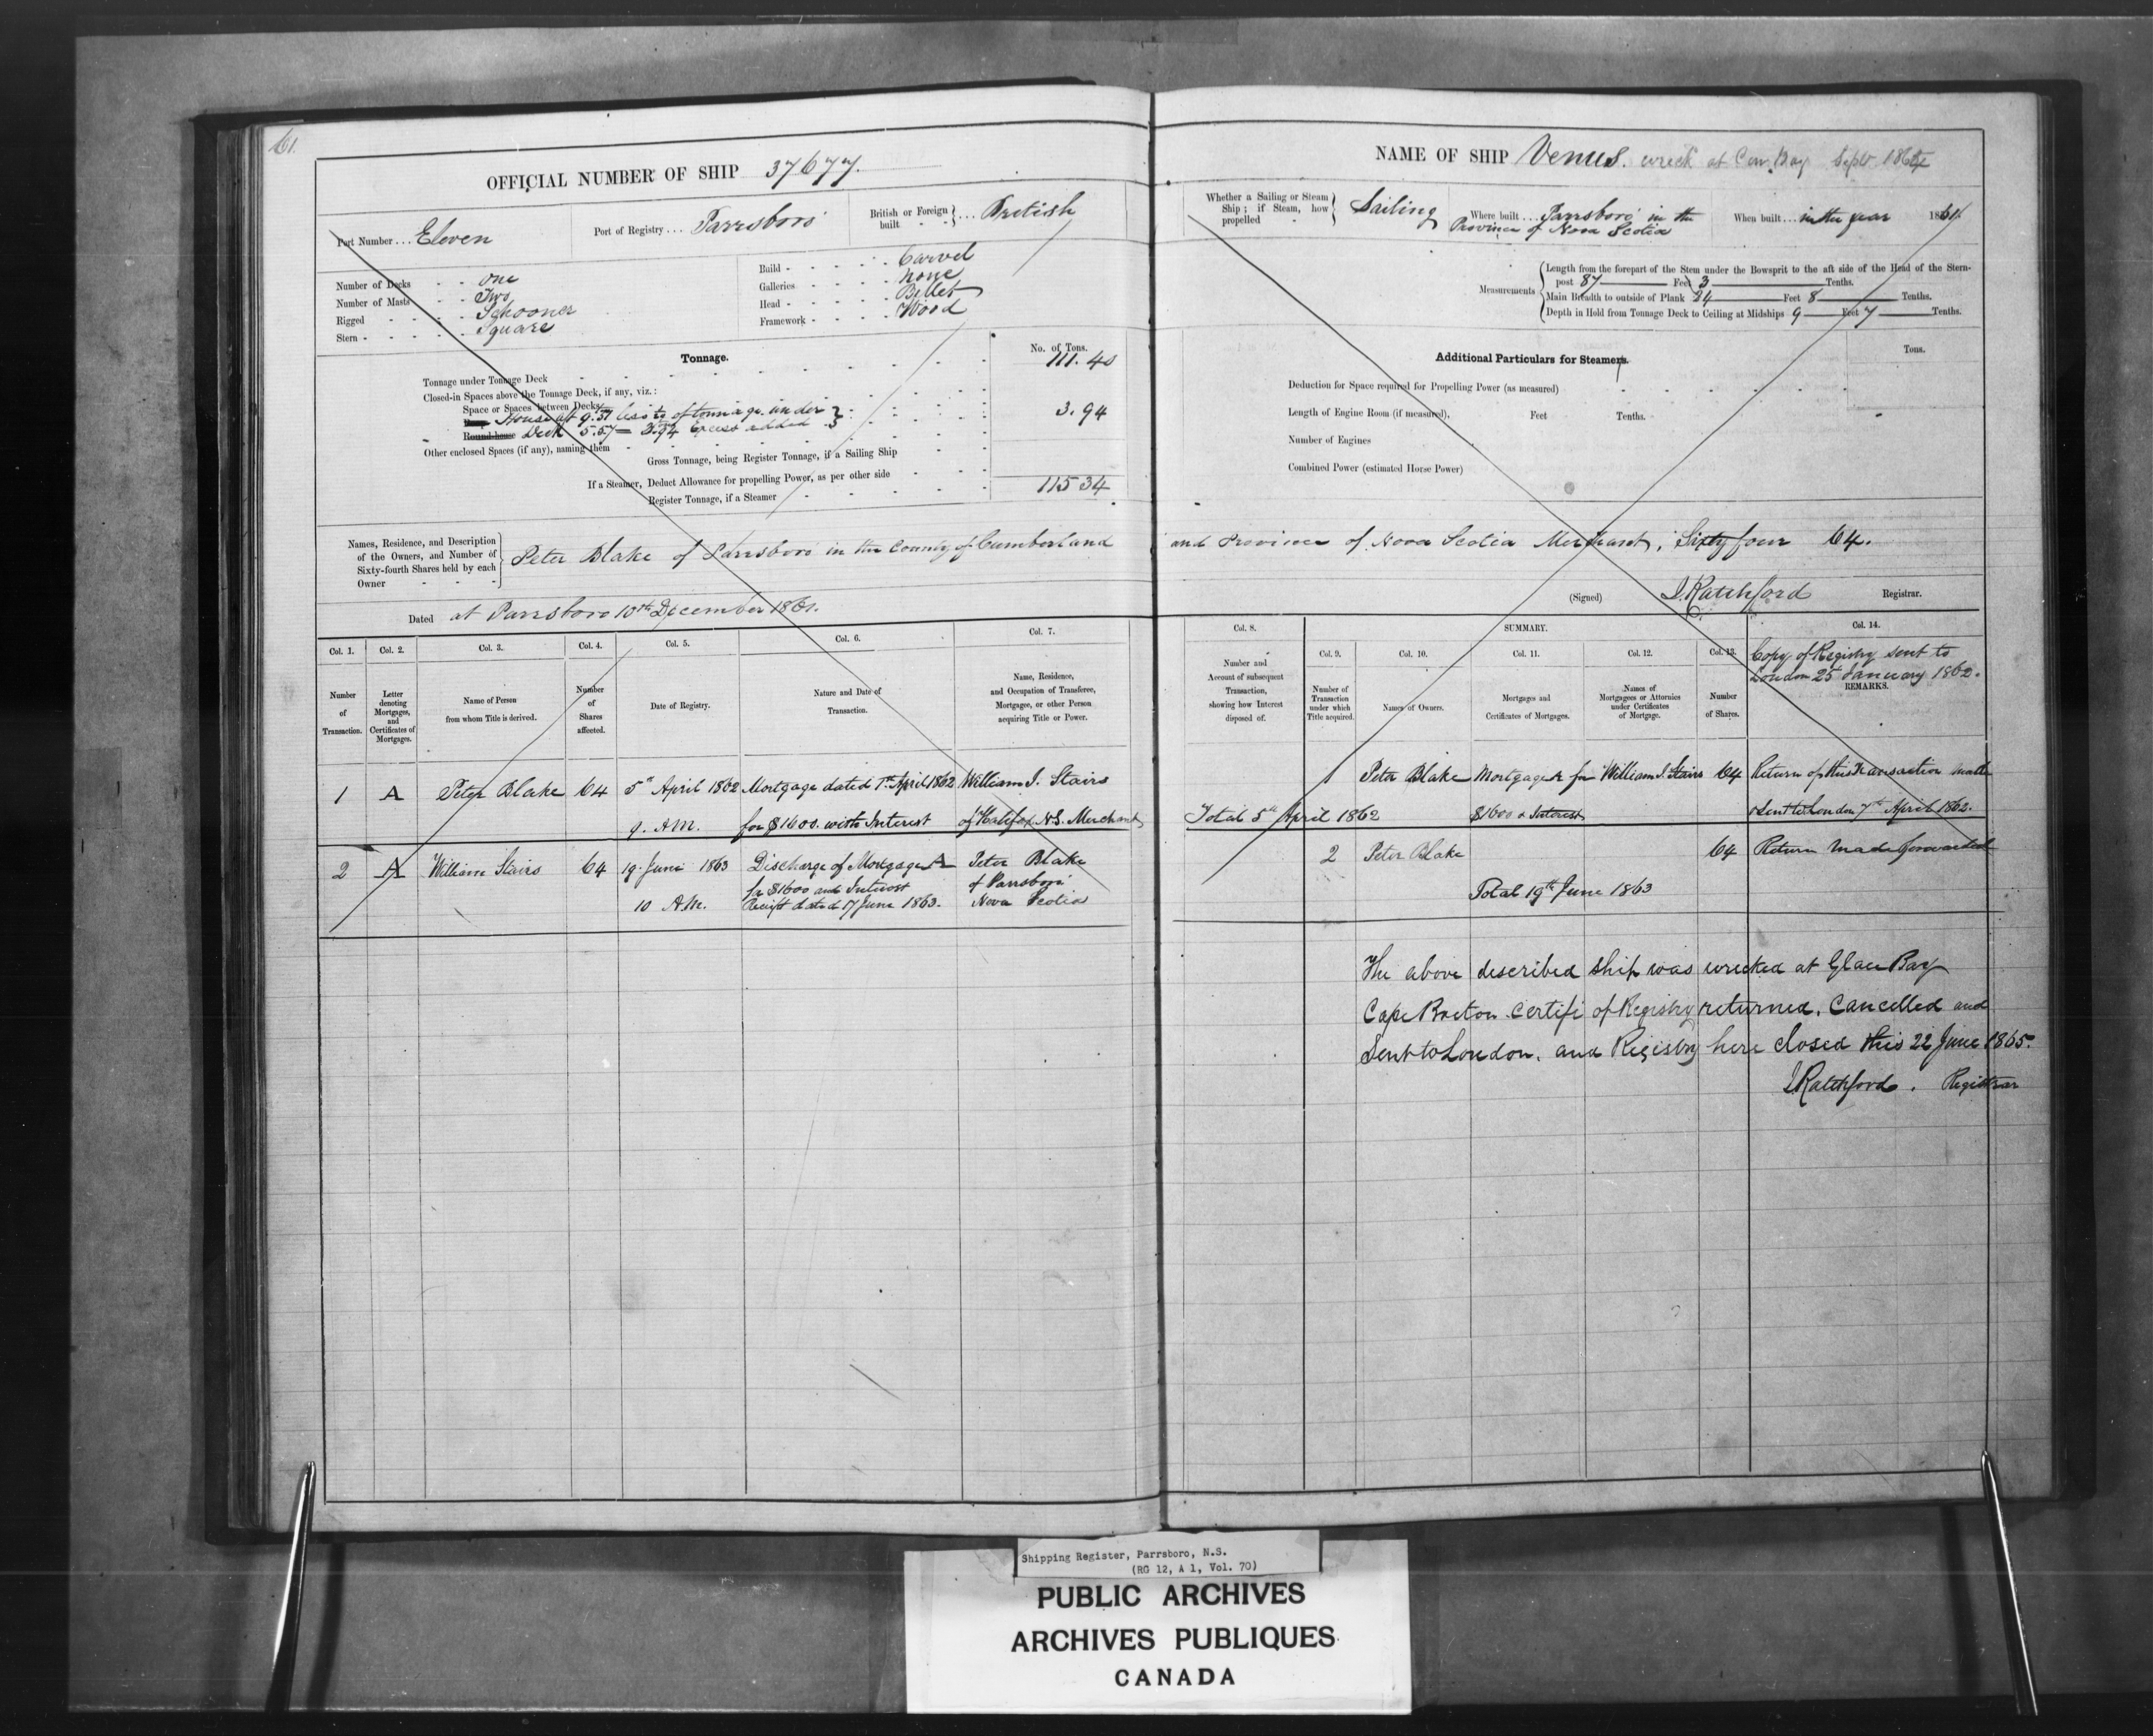 61.
OFFICIAL NUMBER OF SHIP 37677.
Port Number ... Eleven
Port of Registry ... Parrsboro'
British or Foreign built ... British
Number of Decks - - One
Number of Masts - - Two
Rigged - - - - Schooner
Stern - - - - - Square
Build - - - - - Carvel
Galleries - - - - None
Head - - - - - Billet
Framework - - - - Wood
Tonnage.
No. of Tons.
Tonnage under Tonnage Deck 111.40
Closed-in Spaces above the Tonnage Deck, if any, viz.:
Space or Spaces between Decks
House at 9.51 less of tonnage under
Round-house Deck 5.57 = 3.94 Excess added 3.94
Other enclosed Spaces (if any), naming them
Gross Tonnage, being Register Tonnage, if a Sailing Ship
If a Steamer, Deduct Allowance for propelling Power, as per other side
Register Tonnage, if a Steamer 115 34
Names, Residence, and Description of the Owners, and Number of Sixty-fourth Shares held by each Owner
Peter Blake of Parrsboro in the County of Cumberland
Dated at Parrsboro 10th December 1861.
Col. 1. Col. 2. Col. 3. Col. 4. Col. 5. Col. 6. Col. 7.
Number of Transaction.
Letter denoting Mortgages, and Certificates of Mortgages.
Name of Person from whom Title is derived.
Number of Shares affected.
Date of Registry.
Nature and Date of Transaction.
Name, Residence, and Occupation of Transferee, Mortgagee, or other Person acquiring Title or Power.
1 A Peter Blake 64 5th April 1862 Mortgage dated 1st April 1862 William J. Stairs
9. AM. for $1600. with Interest of Halifax N.S. Merchant
2 A William Stairs 64 19 June 1863 Discharge of Mortgage A Peter Blake
for $1600 and Interest of Parrsboro'
10 A.M. Receipt dated 17 June 1863. Nova Scotia
NAME OF SHIP Venus. wreck at Cow Bay Sept 1864
Whether a Sailing or Steam Ship; if Steam, how propelled
Sailing
Where built ... Parrsboro' in the
Province of Nova Scotia
When built ... in the year 1861.
Measurements
Length from the forepart of the Stem under the Bowsprit to the aft side of the Head of the Stern-
post 87 Feet 3 Tenths.
Main Breadth to outside of Plank 24 Feet 8 Tenths.
Depth in Hold from Tonnage Deck to Ceiling at Midships 9 Feet 7 Tenths.
Additional Particulars for Steamers.
Tons.
Deduction for Space required for Propelling Power (as measured)
Length of Engine Room (if measured), Feet Tenths.
Number of Engines
Combined Power (estimated Horse Power)
and Province of Nova Scotia Merchant, Sixty four 64.
(Signed) J. Ratchford Registrar.
Col. 8. SUMMARY. Col. 14.
Col. 9. Col. 10. Col. 11. Col. 12. Col. 13.
Number and Account of subsequent Transaction, showing how Interest disposed of.
Number of Transaction under which Title acquired.
Names of Owners.
Mortgages and Certificates of Mortgages.
Names of Mortgagees or Attornies under Certificates of Mortgage.
Number of Shares.
Copy of Registry sent to
London 25 January 1862.
REMARKS.
1 Peter Blake Mortgage A for William J. Stairs 64 Return of this Transaction made
Total 5th April 1862 $1600 & Interest & sent to London 7th April 1862.
2 Peter Blake 64 Return made forwarded
Total 19th June 1863
The above described ship was wrecked at Glace Bay
Cape Breton Certifi of Registry returned, Cancelled and
Sent to London, and Registry here closed this 22 June 1865.
J. Ratchford. Registrar
Shipping Register, Parrsboro, N.S.
(RG 12, A 1, Vol. 70)
PUBLIC ARCHIVES
ARCHIVES PUBLIQUES
CANADA